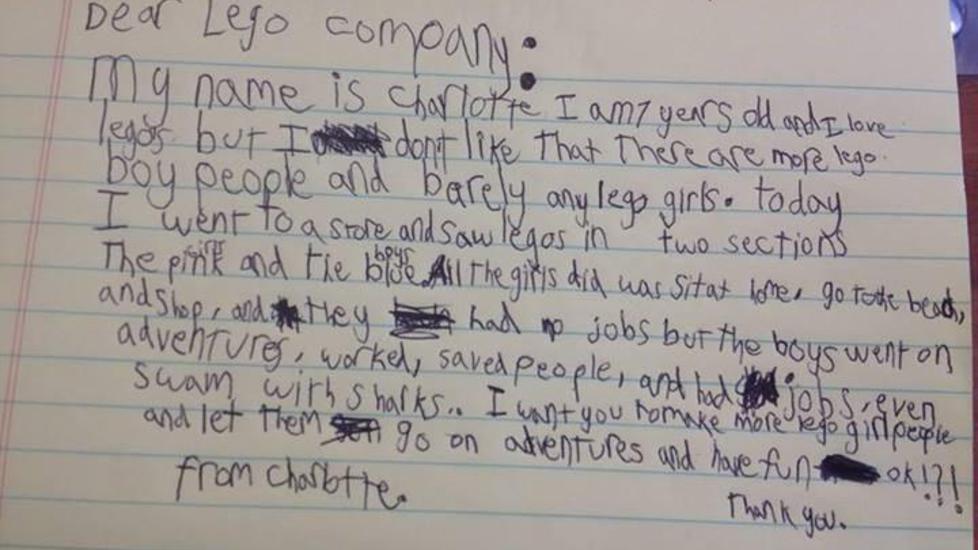 Dear Lego company:
My name is Charlotte I am 7 years old and I love
legos but I don't like that there are more lego
boy people and barely any lego girls. today
I went to a store and saw legos in two sections
The pink girls and the blue boys. All the girls did was sit at home, go to the beach,
and shop, and they had no jobs but the boys went on
adventures, worked, saved people, and had jobs, even
swam with sharks.. I want you to make more lego girl people
and let them go on adventures and have fun ok!?!
from Charlotte.
Thank you.